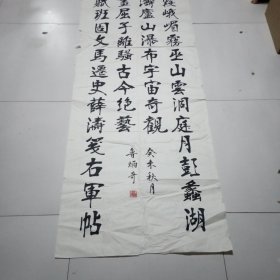 峨嵋霧巫山雲洞庭月彭蠡湖
濤廬山瀑布宇宙奇觀
癸未秋月
賦班固文馬遷史薛濤箋右軍帖
屈子離騷古今絕藝